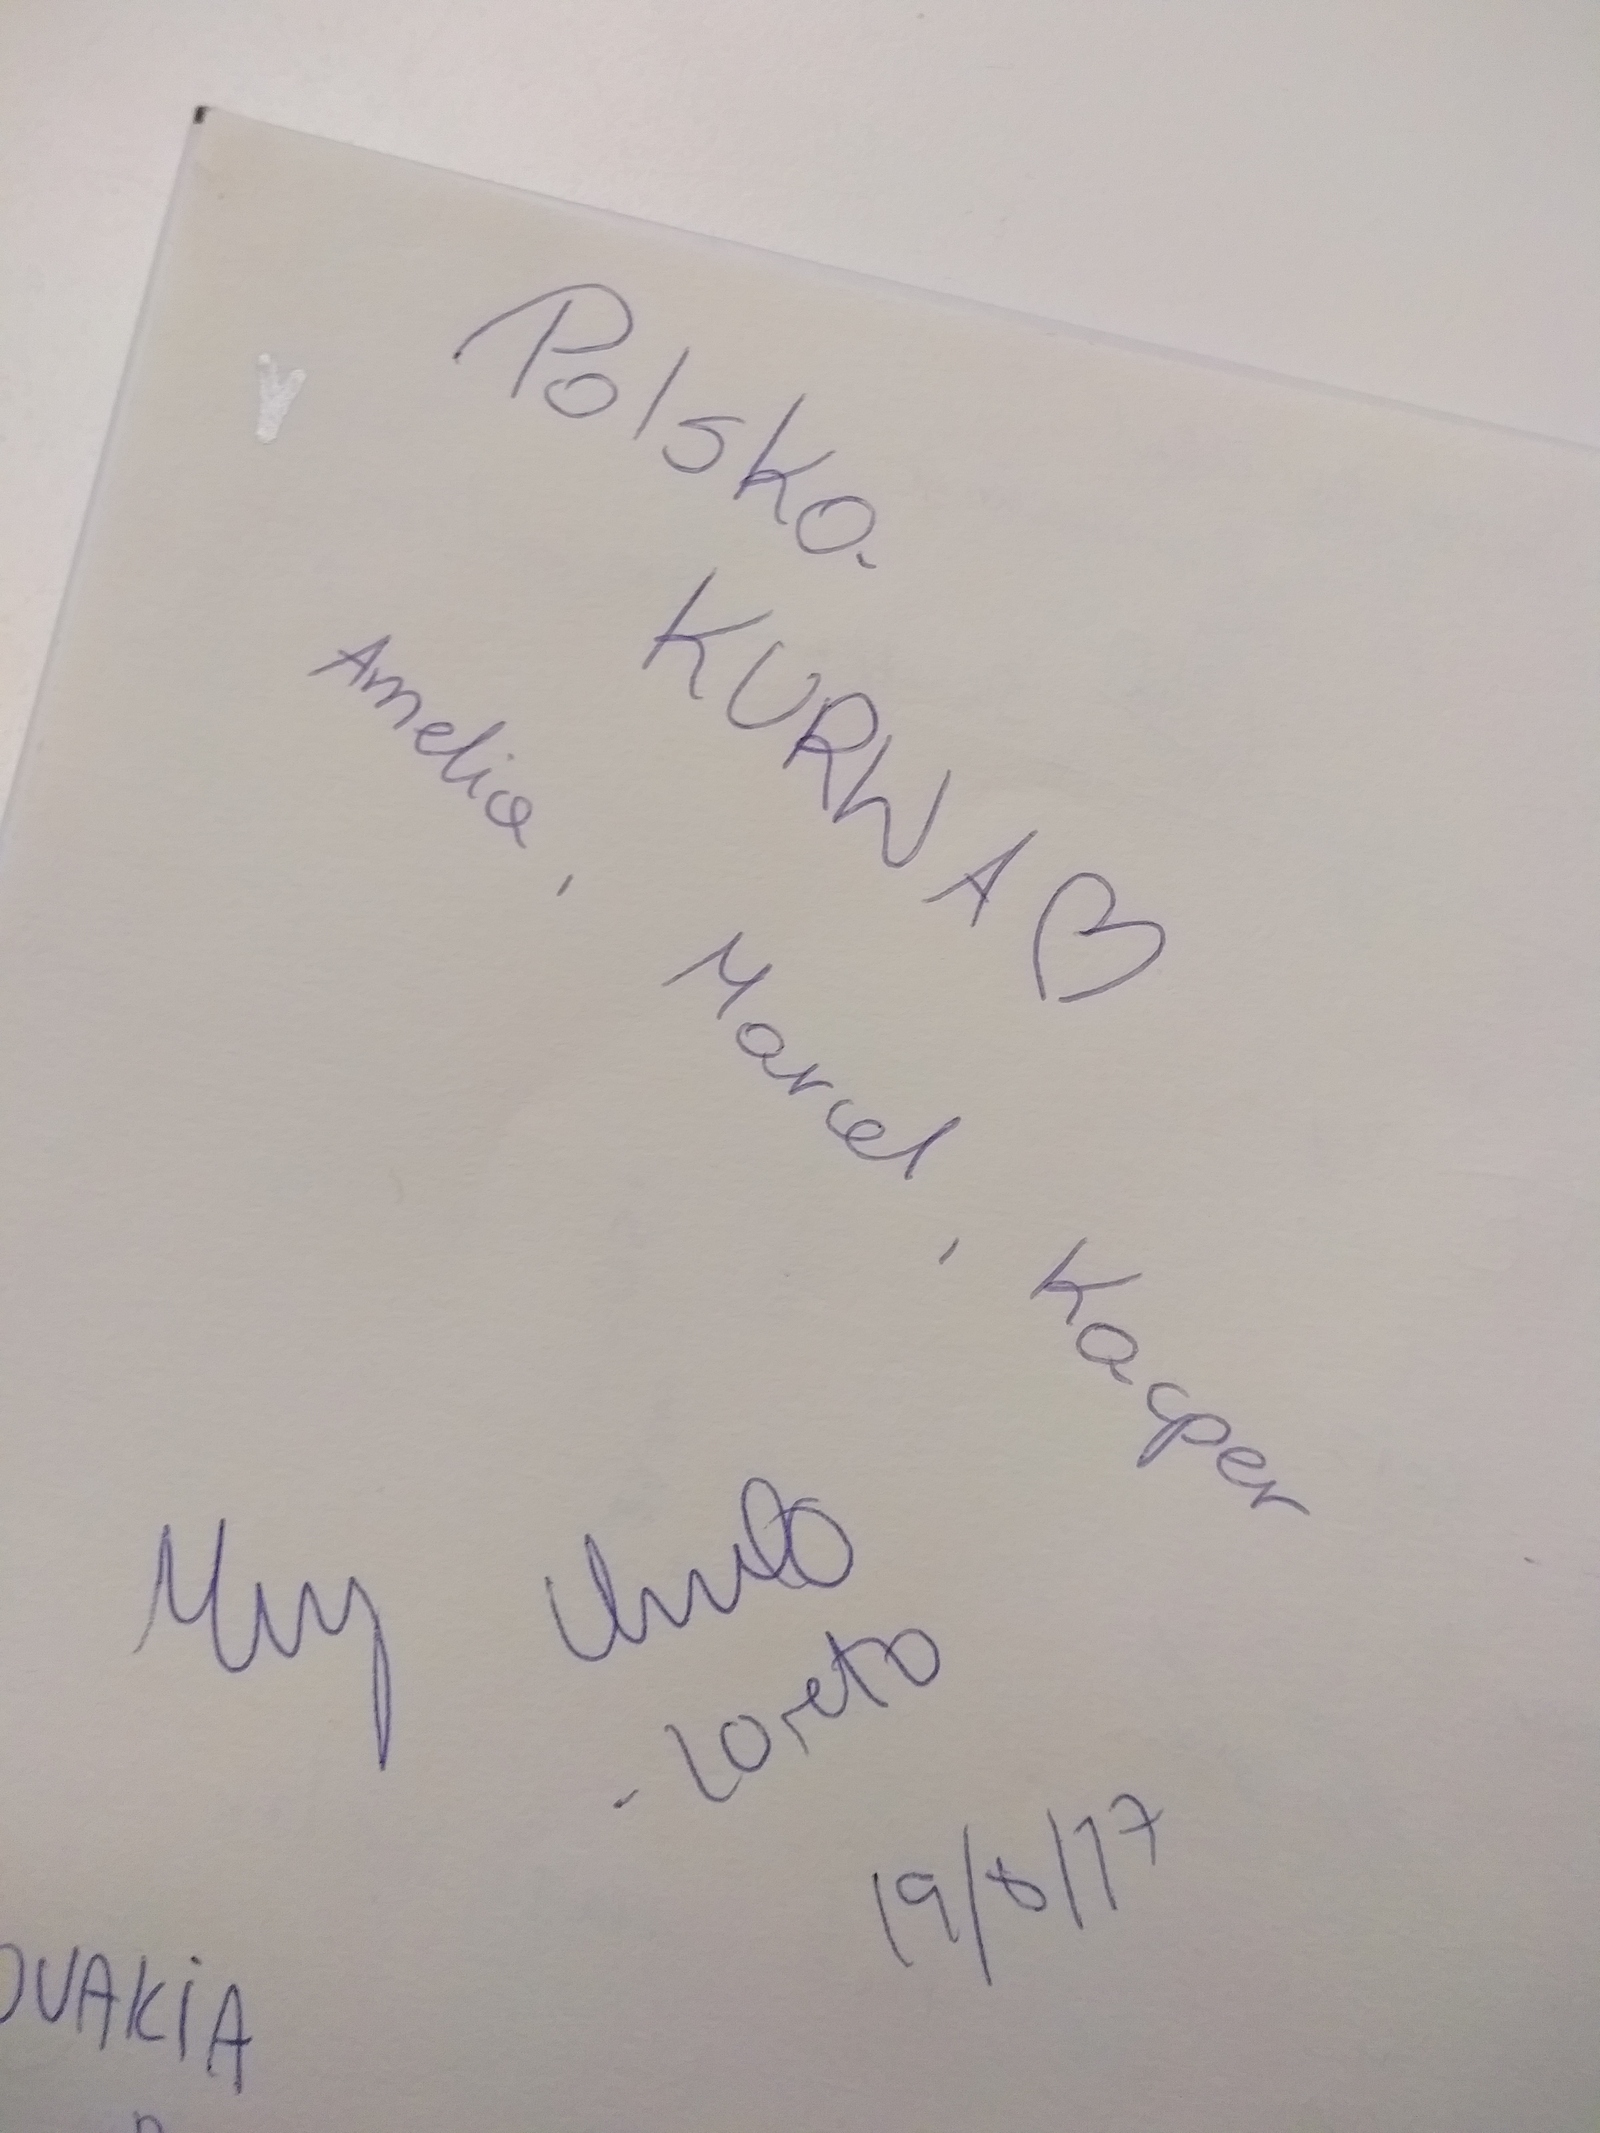 Polska
KURWA ♡
Amelia, Marcel, Kacper
Muy chulo
- Loreto
19/8/17
OVAKiA